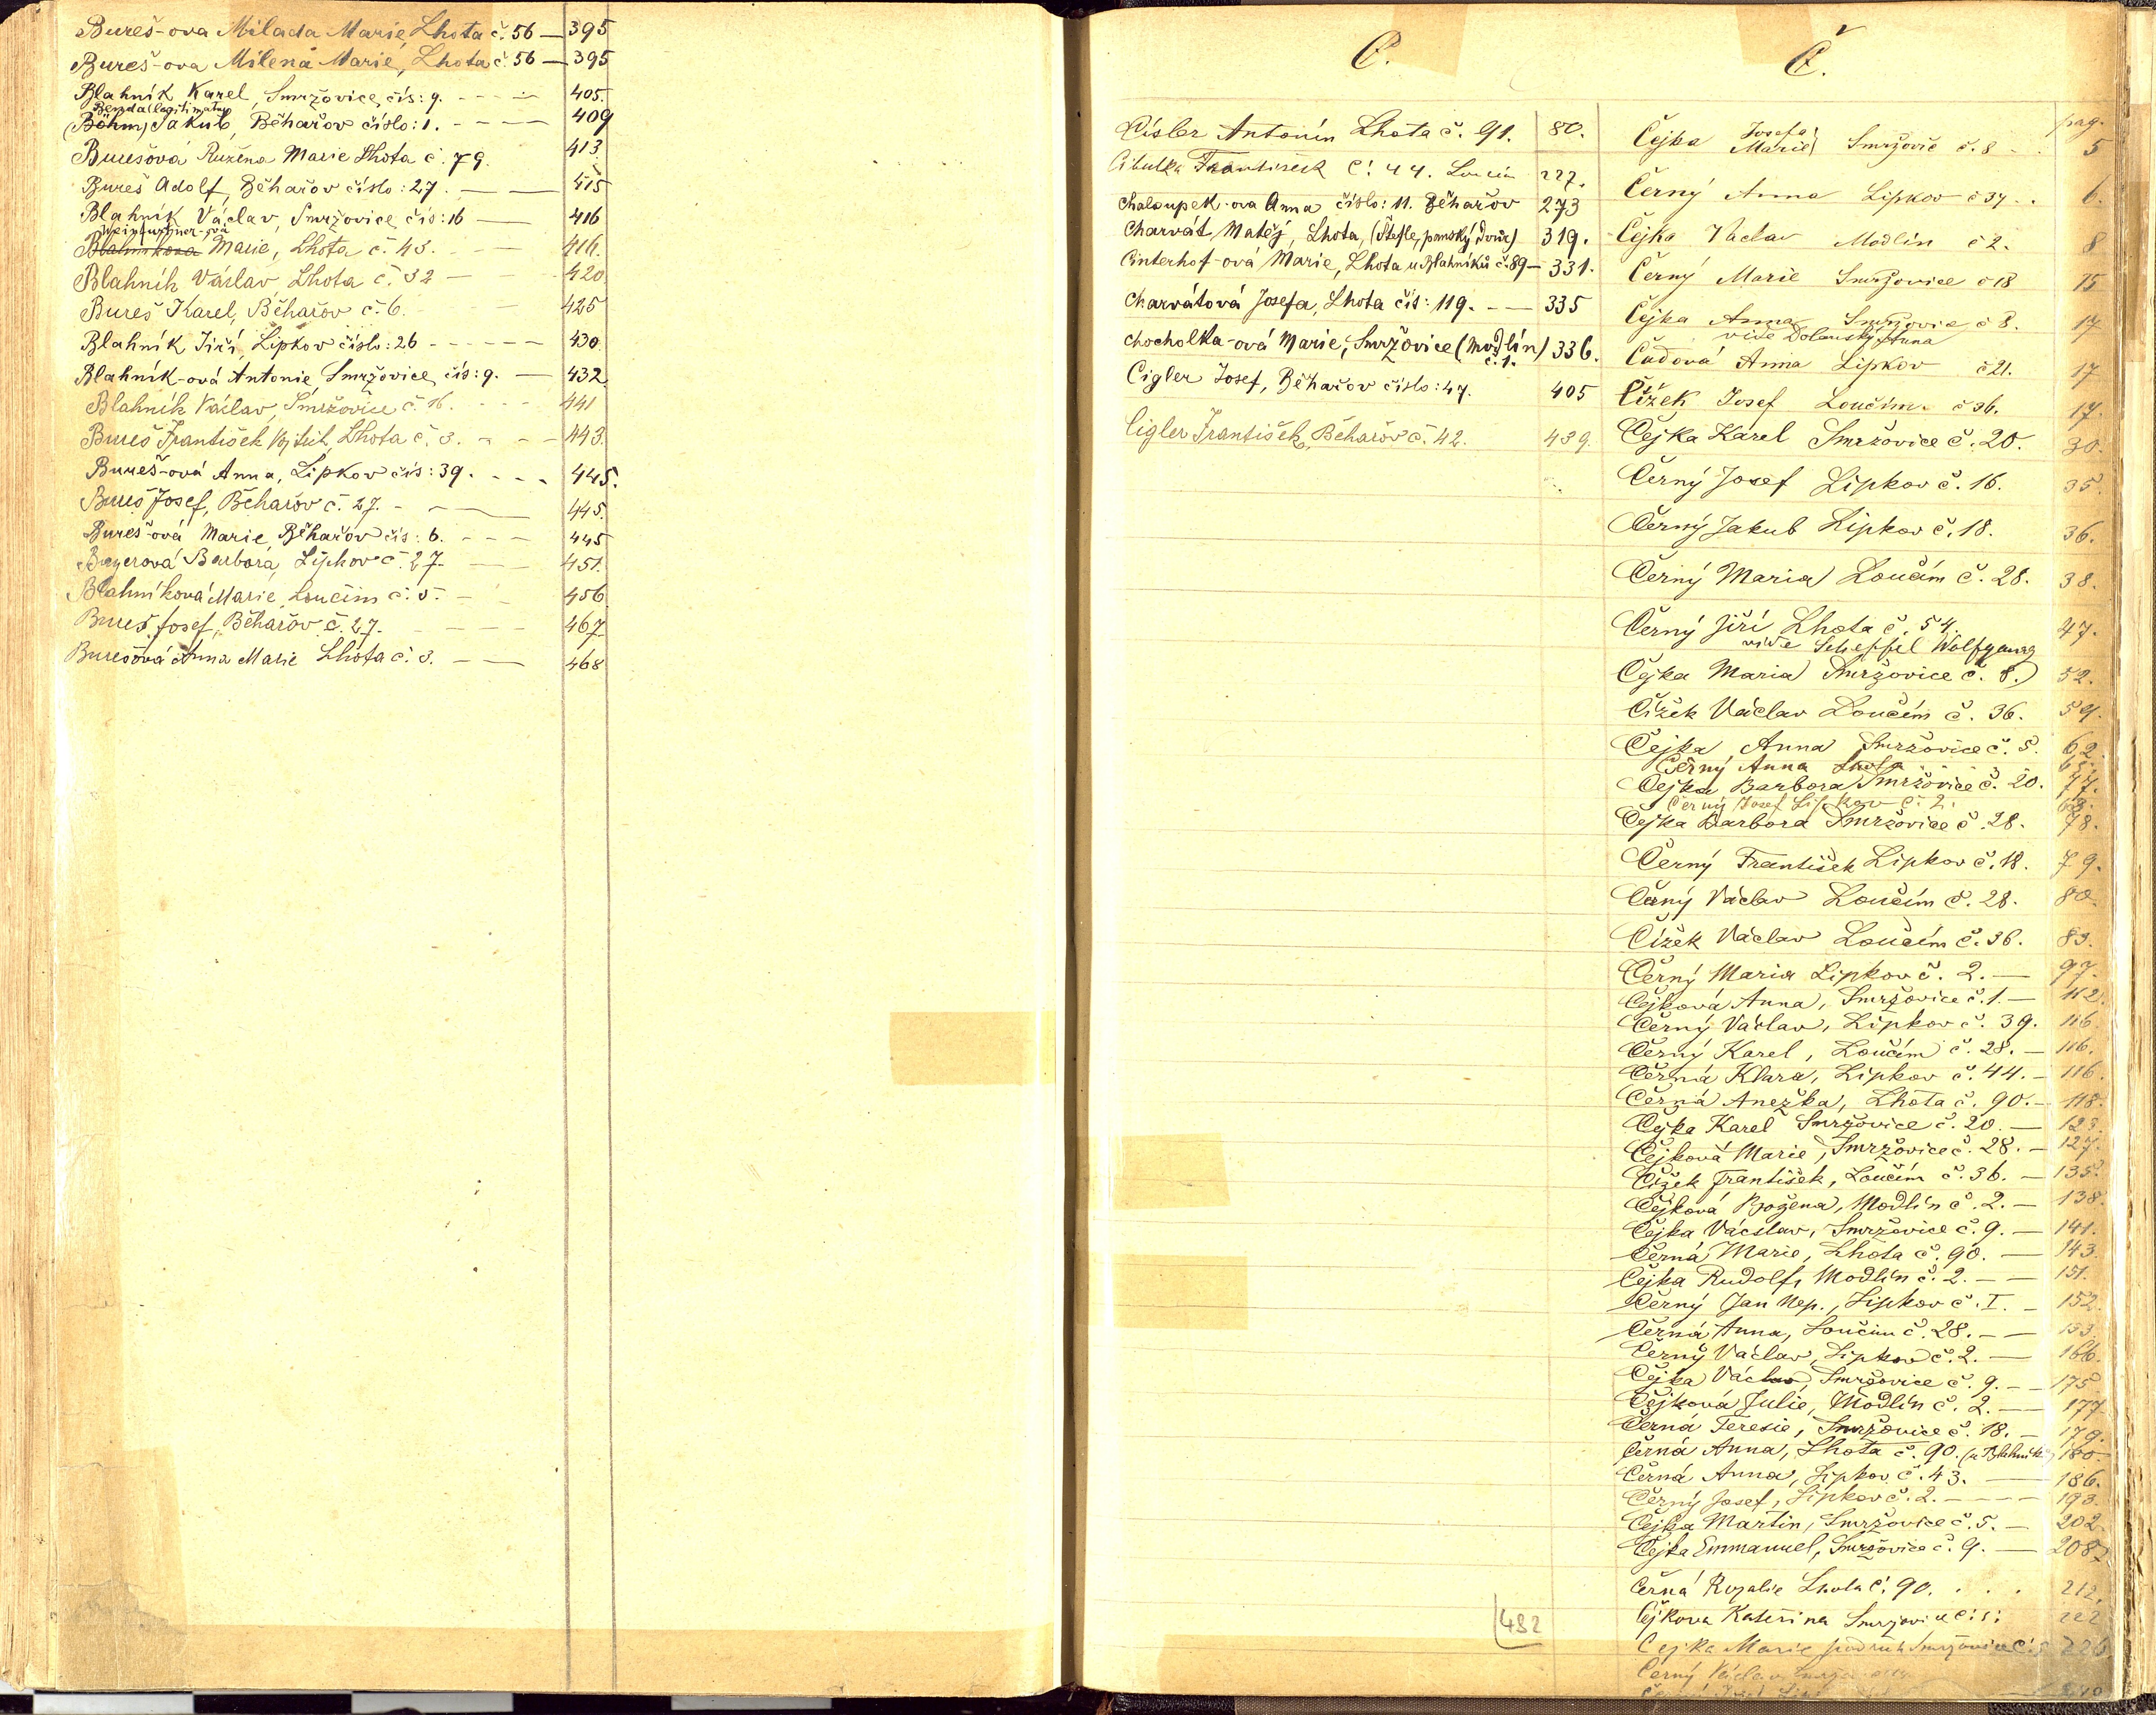 Bureš-ova Milada Marie Lhota č. 56 — 395
Bureš-ova Milena Marie, Lhota č. 56 — 395
Blahník Karel, Smržovice, čís: 9. - - - 405.
Benda (legitimatus
(Böhm) Jakub, Běhařov číslo: 1. - - - - 409
Burešová Ružena Marie Lhota č. 79. 413
Bureš Adolf, Běhařov číslo: 27. — — 415
Blahník Václav, Smržovice, čís: 16 — 416
Blahníková Marie, Lhota č. 43. — 416.
Blahník Václav, Lhota č. 32 — — 420.
Bureš Karel, Běhařov č. 6. — 425
Blahník Jiří, Lipkov číslo: 26 - - - - - 430.
Blahník-ová Antonie, Smržovice, čís: 9. — 432.
Blahník Václav, Smržovice č. 16. - - - 441
Bureš František Vojtěch, Lhota č. 3. - - - 443.
Bureš-ová Anna, Lipkov čís: 39. - - - 445.
Bureš Josef, Běhařov č. 27. - - — 445.
Bureš-ová Marie, Běhařov čís: 6. - - - 445
Bayerová Barbora, Lipkov č. 27. — — 451.
Blahníková Marie, Loučim č. 5. - - 456
Bureš Josef, Běhařov č. 27. - - - - 467
Burešová Anna Marie Lhota č. 3. — — 468
C.
Císler Antonín Lhota č. 91. 80.
Cibulka Frantisek č: 44. Loucim 227.
Chaloupek-ova Anna číslo: 11. Běhařov 273
Charvát Matěj, Lhota, (Štefle, panský dvůr) 319.
Cinterhof-ová Marie, Lhota u Blahníků č. 89 — 331.
Charvátová Josefa, Lhota čís: 119. - — 335
Chocholka-ová Marie, Smržovice (Modlín) 336.
č. 1.
Cigler Josef, Běhařov číslo: 47. 405
Cigler František, Běhařov č. 42. 439.
482
Č.
pag.
Josefa
Čejka Marie Smržovic č. 8 - - 5
Černý Anna Lipkov č 37 . . 6.
Čejka Vaclav Modlín č 2. 8
Černý Marie Smržovice č 18 15
Čejka Anna Smržovic č 8. 17
vide Dolanský Anna
Čadová Anna Lipkov č 21. 17
Čížek Josef Loučim č 36. 17.
Čejka Karel Smržovice č. 20. 30.
Černý Josef Lipkov č. 16. 35.
Černý Jakub Lipkov č. 18. 36.
Černý Maria Loučím č. 28. 38.
Černý Jiří Lhota č. 54. 47.
vide Scheffel Wolfgang
Čejka Maria Smržovice č. 8. 52.
Čížek Václav Loučím č. 36. 59.
Čejka Anna Smržovice č. 5. 62.
Černý Anna Lhota
Čejka Barbora Smržovice č. 20. 77.
Černý Josef Lipkov č. 2. 68.
Čejka Barbora Smržovice č. 28. 78.
Černý František Lipkov č. 18. 79.
Černý Václav Loučím č. 28. 80.
Čížek Václav Loučím č. 36. 83.
Černý Maria Lipkov č. 2. — 97.
Čejková Anna, Smržovice č. 1. — 112.
Černý Václav, Lipkov č. 39. 116
Černý Karel, Loučím č. 28. — 116.
Černá Klara, Lipkov č. 44. - 116.
Černá Anežka, Lhota č. 90. - 118.
Čejka Karel Smržovice č. 20. — 123.
Čejková Marie, Smržovice č. 28. - 127.
Čížek František, Loučím č. 36. — 135.
Čejková Božena, Modlín č. 2. — 138.
Čejka Václav, Smržovice č. 9. — 141.
Černá Marie, Lhota č. 90. — 143.
Čejka Rudolf, Modlín č. 2. — — 151.
Černý Jan Nep., Lipkov č. I. - 152.
Černá Anna, Loučim č. 28. - — 153.
Černý Václav, Lipkov č. 2. — 166.
Čejka Václav, Smržovice č. 9. - — 175.
Čejková Julie, Modlín č. 2. — 177
Černá Teresie, Smržovice č. 18. — 179.
Černá Anna, Lhota č. 90. (u Blahníků) 180.
Černá Anna, Lipkov č. 43. — 186.
Černý Josef, Lipkov č. 2. - - - - 193.
Čejka Martin, Smržovice č. 5. — 202.
Čejka Emmanuel, Smržovice č. 9. — 208.
Černá Rozalie Lhota č. 90. . . . 212.
Čejkova Kateřina Smrzovice č: 5: 222
Čejka Marie podruh Smržovice č: 226
Černý Václav